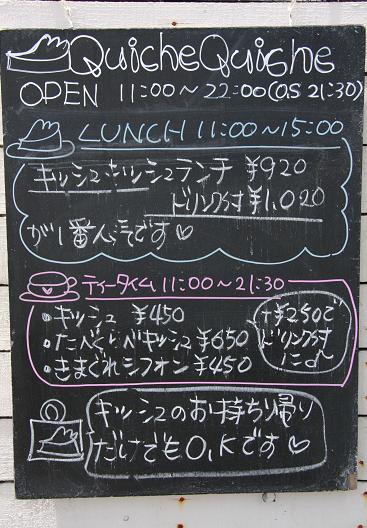 QuicheQuiche
OPEN 11:00～22:00(O.S 21:30)
LUNCH 11:00～15:00
キッシュキッシュランチ ¥920
ドリンク付 ¥1,020
が1番人気です♡
ティータイム 11:00～21:30
・キッシュ ¥450
・たべくらべキッシュ ¥650
・きまぐれシフォン ¥450
+¥250で
ドリンク付
に♂~
キッシュのお持ち帰り
だけでもO,Kです♡